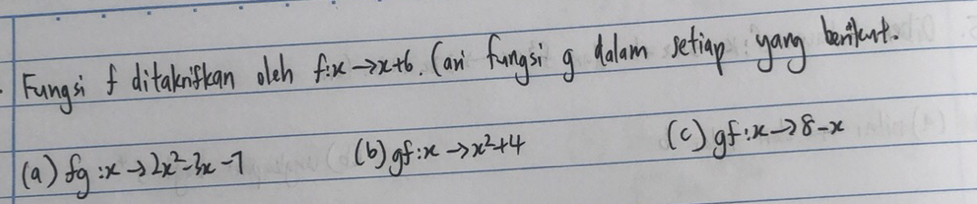 Fungsi f ditakrifkan oleh f:x→x+6. Cari fungsi g dalam setiap yang berikut.
(a) fg:x→2x²-3x-7 (b) gf:x→x²+4 (c) gf:x→8-x